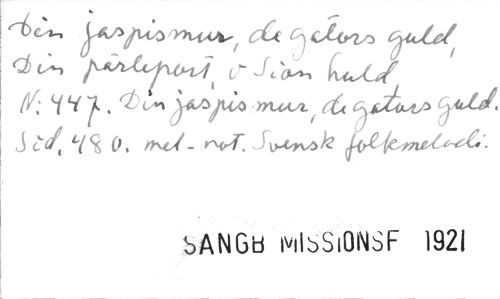 Din jaspismur, de gators guld,
Din pärleport, o Sion huld
N: 447. Din jaspismur, de gators guld.
Sid. 480. mel-not. Svensk folkmelodi.
SANGB MISSIONSF 1921